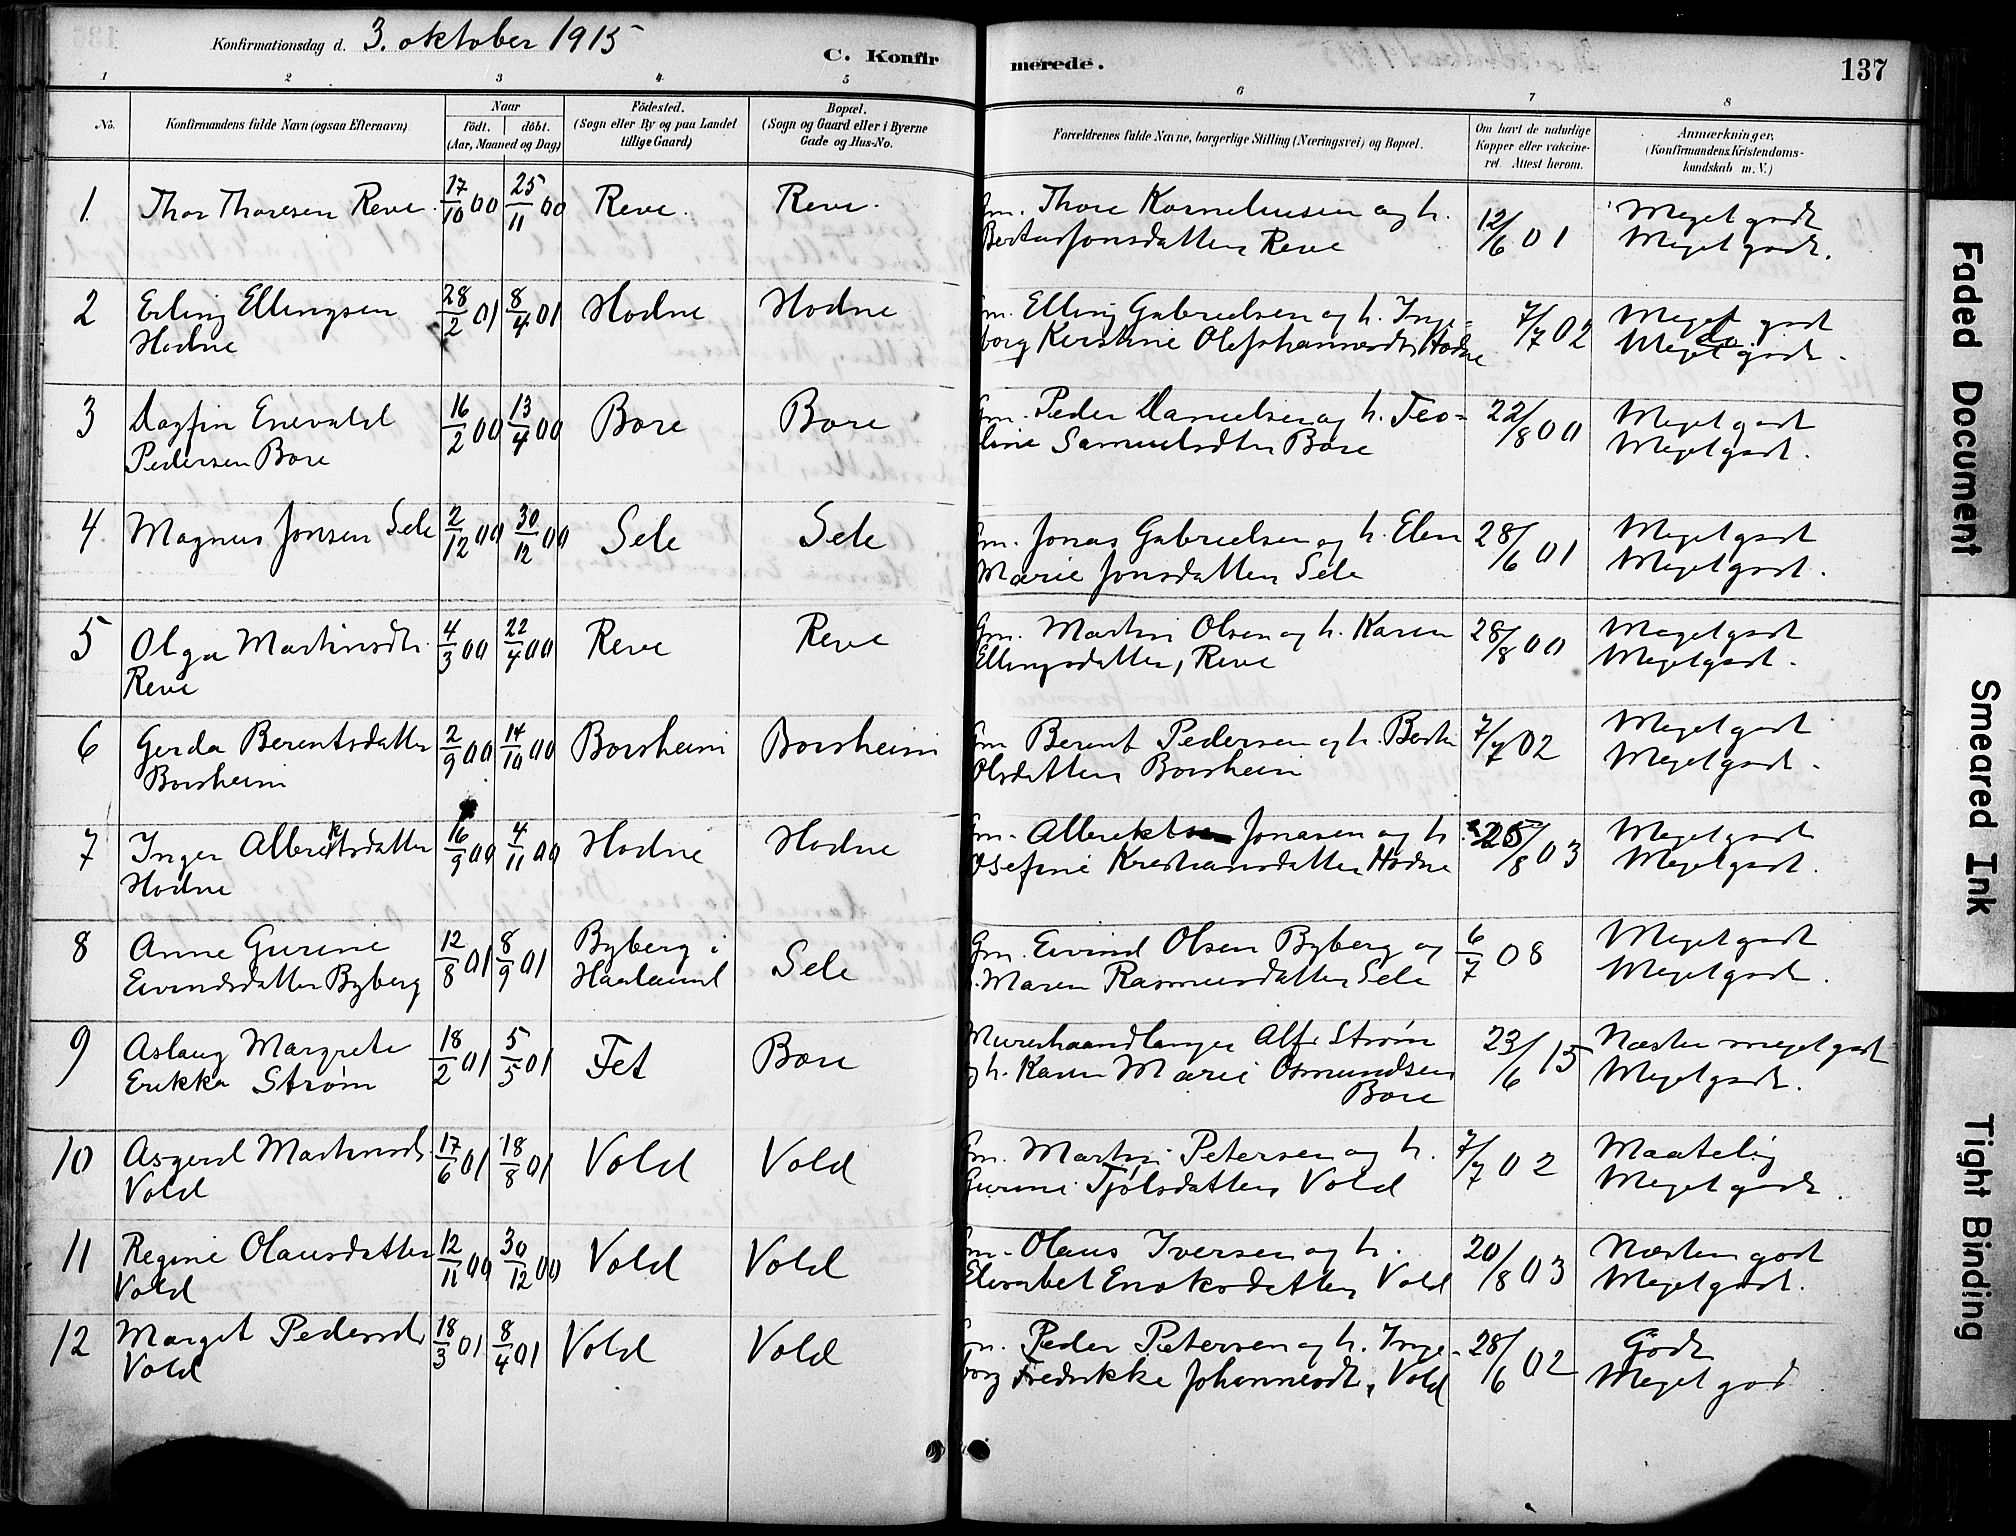 Konfirmationsdag d. 3. oktober 1915
C. Konfirmerede.
137
1 2 3 4 5 6 7 8
No.
Konfirmandens fulde Navn (ogsaa Efternavn)
Naar
födt. döbt.
(Aar, Maaned og Dag)
Födested.
(Sogn eller By og paa Landet
tillige Gaard)
Bopæl.
(Sogn og Gaard eller i Byerne
Gade og Hus-No.
Forældrenes fulde Navne, borgerlige Stilling (Næringsvei) og Bopæl.
Om havt de naturlige
Kopper eller vakcine-
ret. Attest herom.
Anmærkninger.
(Konfirmandens Kristendoms-
kundskab m. V.)
1. Thor Thoresen Reve 17/10 00 25/11 00 Reve. Reve. Gm. Thore Korneliussen og h. 12/6 01 Meget godt
Berta Jonsdatter Reve Meget godt.
2 Erling Ellingsen 28/2 01 8/4 01 Hodne Hodne Gm. Elling Gabrielsen og h. Inge- 7/7 02 Meget godt
Hodne borg Kirstine Olefshannesdtr Hodne Meget godt.
3 Dagfin Enevald 16/2 00 13/4 00 Bore Bore Gm. Peder Danielsen og h. Teo- 22/8 00 Meget godt
Pedersen Bore line Samuelsdtr Bore Meget godt.
4. Magnus Jonsen Sele 2/12 00 30/12 00 Sele Sele Gm. Jonas Gabrielsen og h. Elen 28/6 01 Meget godt
Marie Jonsdatter Sele Meget godt.
5 Olga Martinsdtr. 4/3 00 22/4 00 Reve Reve Gm. Martin Olsen og h. Karen 28/8 00 Meget godt
Reve Ellingsdatter, Reve Meget godt.
6 Gerda Berentsdatter 2/9 00 14/10 00 Borsheim Borsheim Gm Berent Pedersen og h. Berta 7/7 02 Meget godt
Borsheim Olsdatter Borsheim Meget godt.
7 Inger Albrektsdatter 16/9 00 4/11 00 Hodne Hodne Gm. Albrekt Jonasen og h. 25/8 03 Meget godt
Hodne Josefine Kristiansdatter Hodne Meget godt.
8 Anne Gurine 12/8 01 8/9 01 Byberg i Sele Gm. Eivind Olsen Byberg og 6/7 08 Meget godt
Eivindsdatter Byberg Haaland h. Maren Rasmusdatter Sele Meget godt.
9 Aslaug Margrete 18/2 01 5/5 01 Fet Bore Murerhaandlanger Alf Strøm 23/6 15 Næsten meget godt
Erikka Strøm og h. Karen Marie Osmundsen Meget godt.
Bore
10 Asgerd Martinsdtr. 17/6 01 18/8 01 Vold Vold Gm. Martin Petersen og h. 7/7 02 Maatelig
Vold Gurine Tjølsdatter Vold Meget godt.
11 Regine Olausdatter 12/11 00 30/12 00 Vold Vold Gm. Olaus Iversen og h. 20/8 03 Næsten godt
Vold Elisabet Enoksdatter Vold Meget godt.
12 Marget Pedersdtr 18/3 01 8/4 01 Vold Vold Gm. Peder Petersen og h. Inge- 28/6 02 Godt
Vold borg Fredrikke Johannesdt, Vold Meget god
Faded Document
Smeared Ink
Tight Binding